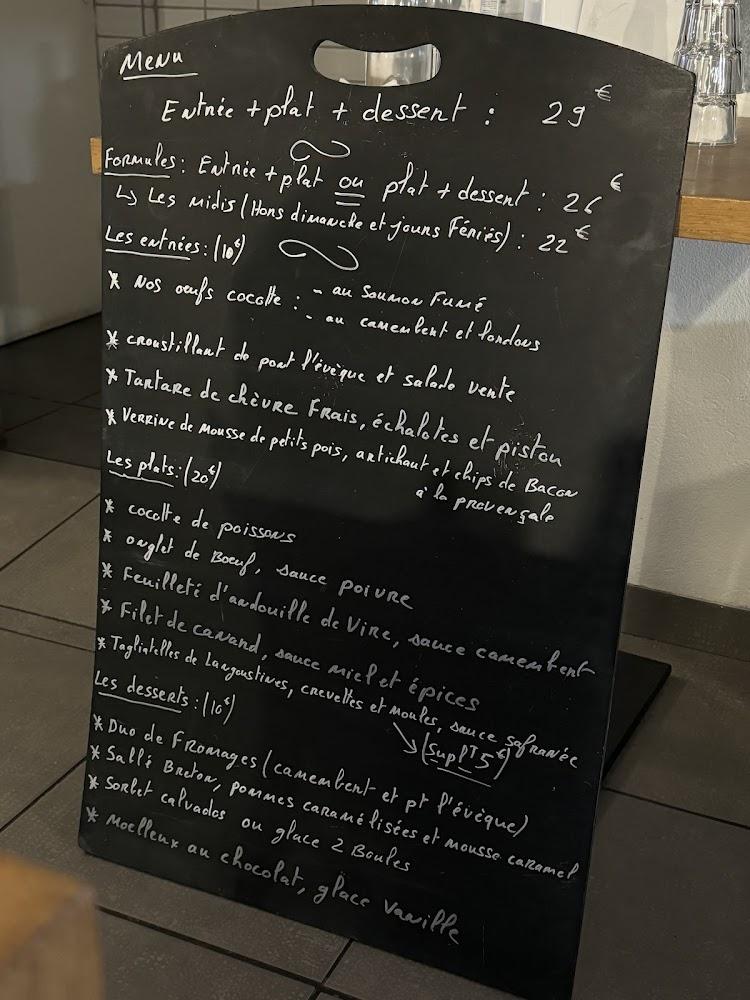 Menu
Entrée + plat + dessent : 29€
Formules : Entrée + plat ou plat + dessent : 26€
↳ Les midis (Hons dimanche et jours Fériés) : 22€
Les entrées : (10€)
* Nos œufs cocotte : - au Saumon Fumé
- au camembent et londons
* croustillant de pont l'évêque et salade vente
* Tantane de chèvre Frais, échalotes et piston
* Verrine de mousse de petits pois, antichaut et chips de Bacon
à la provençale
Les plats : (20€)
* cocotte de poissons
* onglet de Bœuf, sauce poivre
* Feuilleté d'andouille de Vire, sauce camembent
* Filet de canand, sauce miel et épices
* Tagliatelles de Langoustines, crevettes et moules, sauce safranée
(SuplT 5€)
Les desserts : (10€)
* Duo de Fromages (camembent et pt l'évêque)
* Sablé Breton, pommes caramélisées et mousse caramel
* Sorbet calvados ou glace 2 Boules
* Moelleux au chocolat, glace vanille